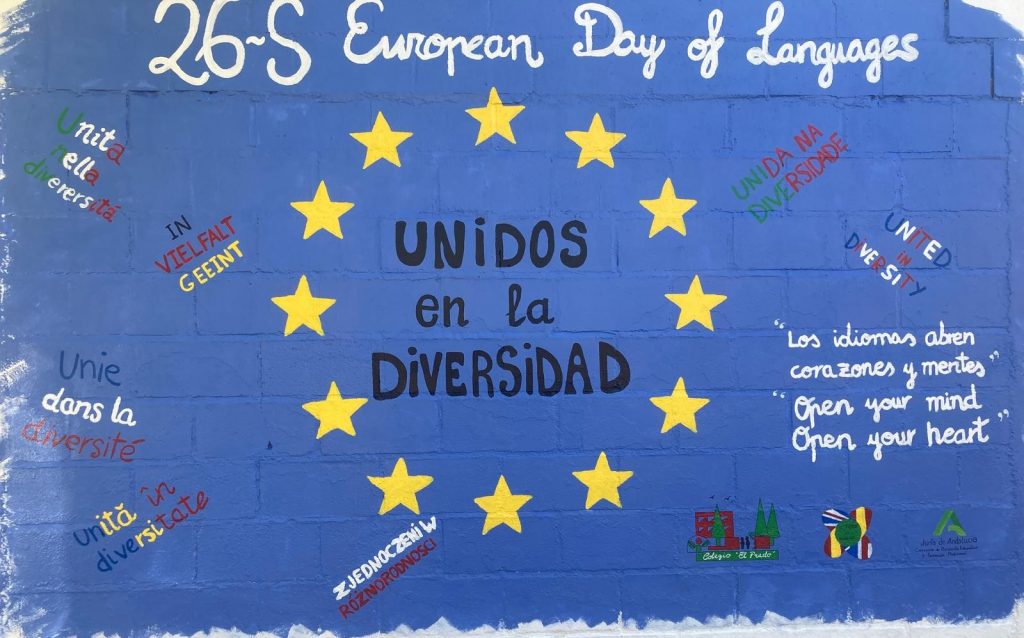 26-S European Day of Languages
Unita
nella
diverersitá
IN
VIELFALT
GEEINT
UNIDOS
en la
DIVERSIDAD
UNIDA NA
DIVERSIDADE
UNITED
IN
DIVERSITY
Unie
dans la
diversité
"Los idiomas abren
corazones y mentes"
"Open your mind
Open your heart"
unită în
diversitate
ZJEDNOCZENI W
RÓŻNORODNOŚCI
Colegio "El Prado"
Junta de Andalucía